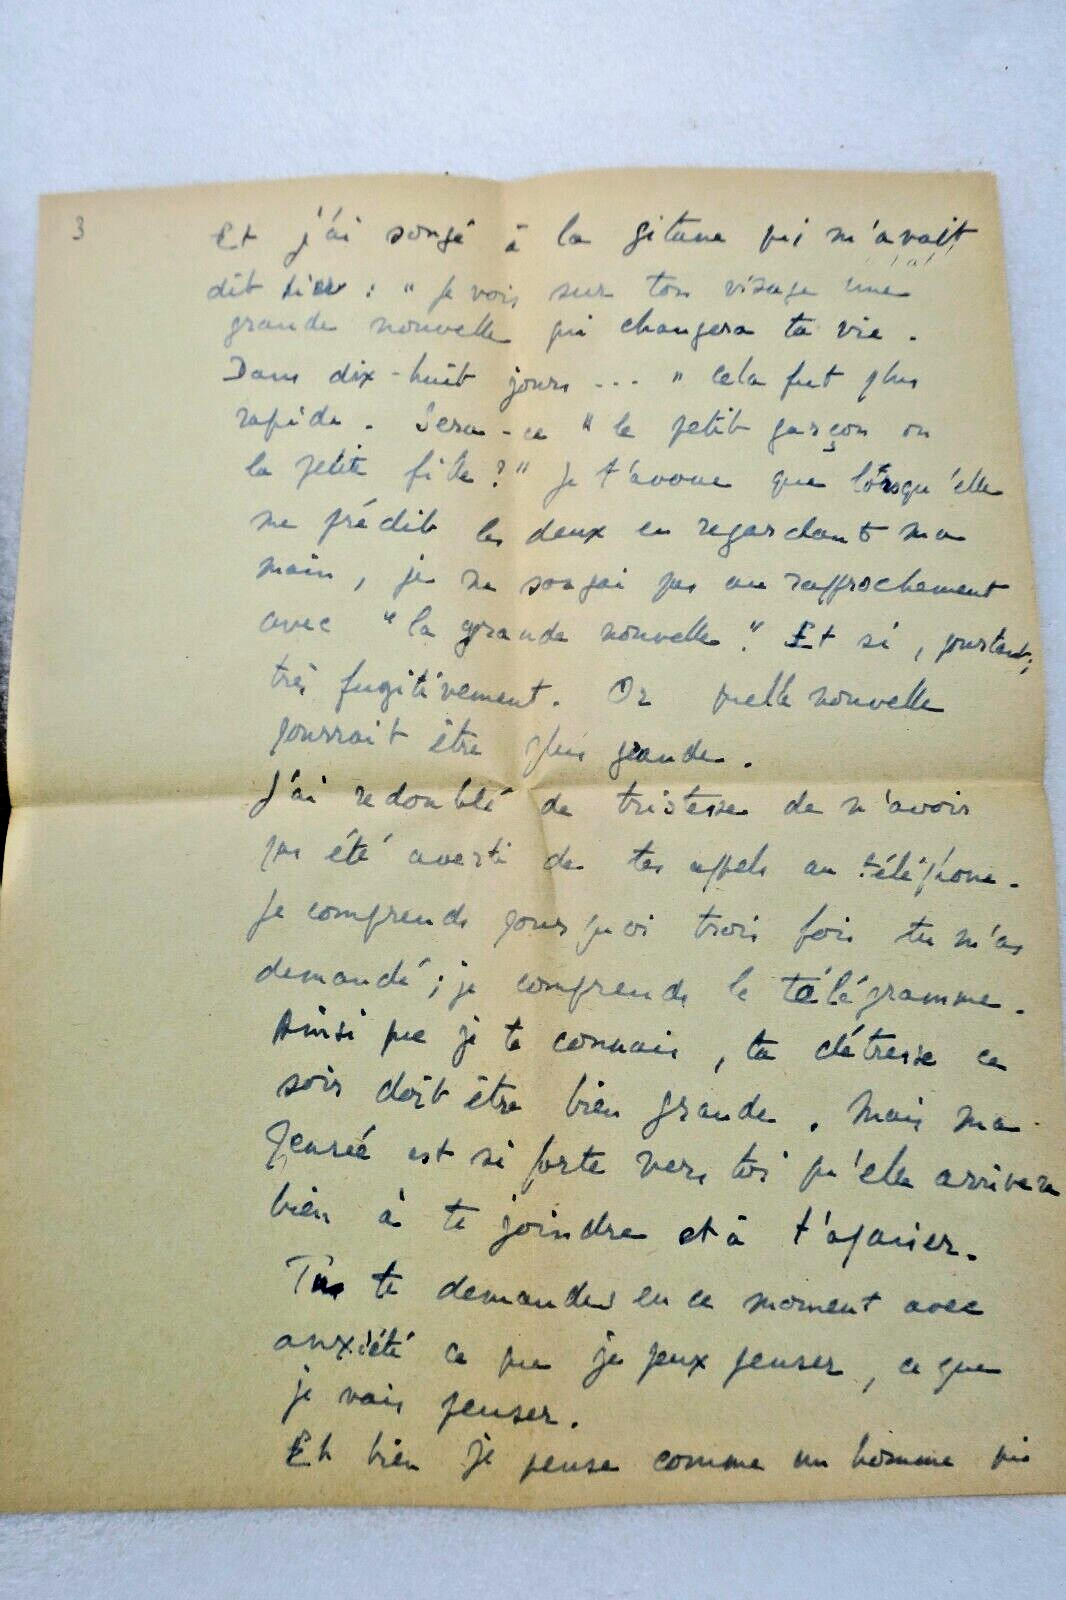 3
Et j'ai songé à la gitane qui m'avait
dit hier : " Je vois sur ton visage une
grande nouvelle qui changera ta vie .
Dans dix-huit jours ... " Cela fut plus
rapide . Sera-ce " le petit garçon ou
la petite fille ? " Je t'avoue que lorsqu'elle
me prédit les deux en regardant ma
main , je ne songai pas au rapprochement
avec " la grande nouvelle " . Et si , pourtant ;
très fugitivement . Or quelle nouvelle
pourrait être plus grande .
J'ai redoublé de tristesse de n'avoir
pas été averti de tes appels au téléphone .
Je comprends pourquoi trois fois tu m'as
demandé ; je comprends le télégramme .
Ainsi que je te connais , ta détresse ce
soir doit être bien grande . Mais ma
pensée est si forte vers toi qu'elle arrivera
bien à te joindre et à t'apaiser .
Tu te demandes en ce moment avec
anxiété ce que je peux penser , ce que
je vais penser .
Eh bien je pense comme un homme qui